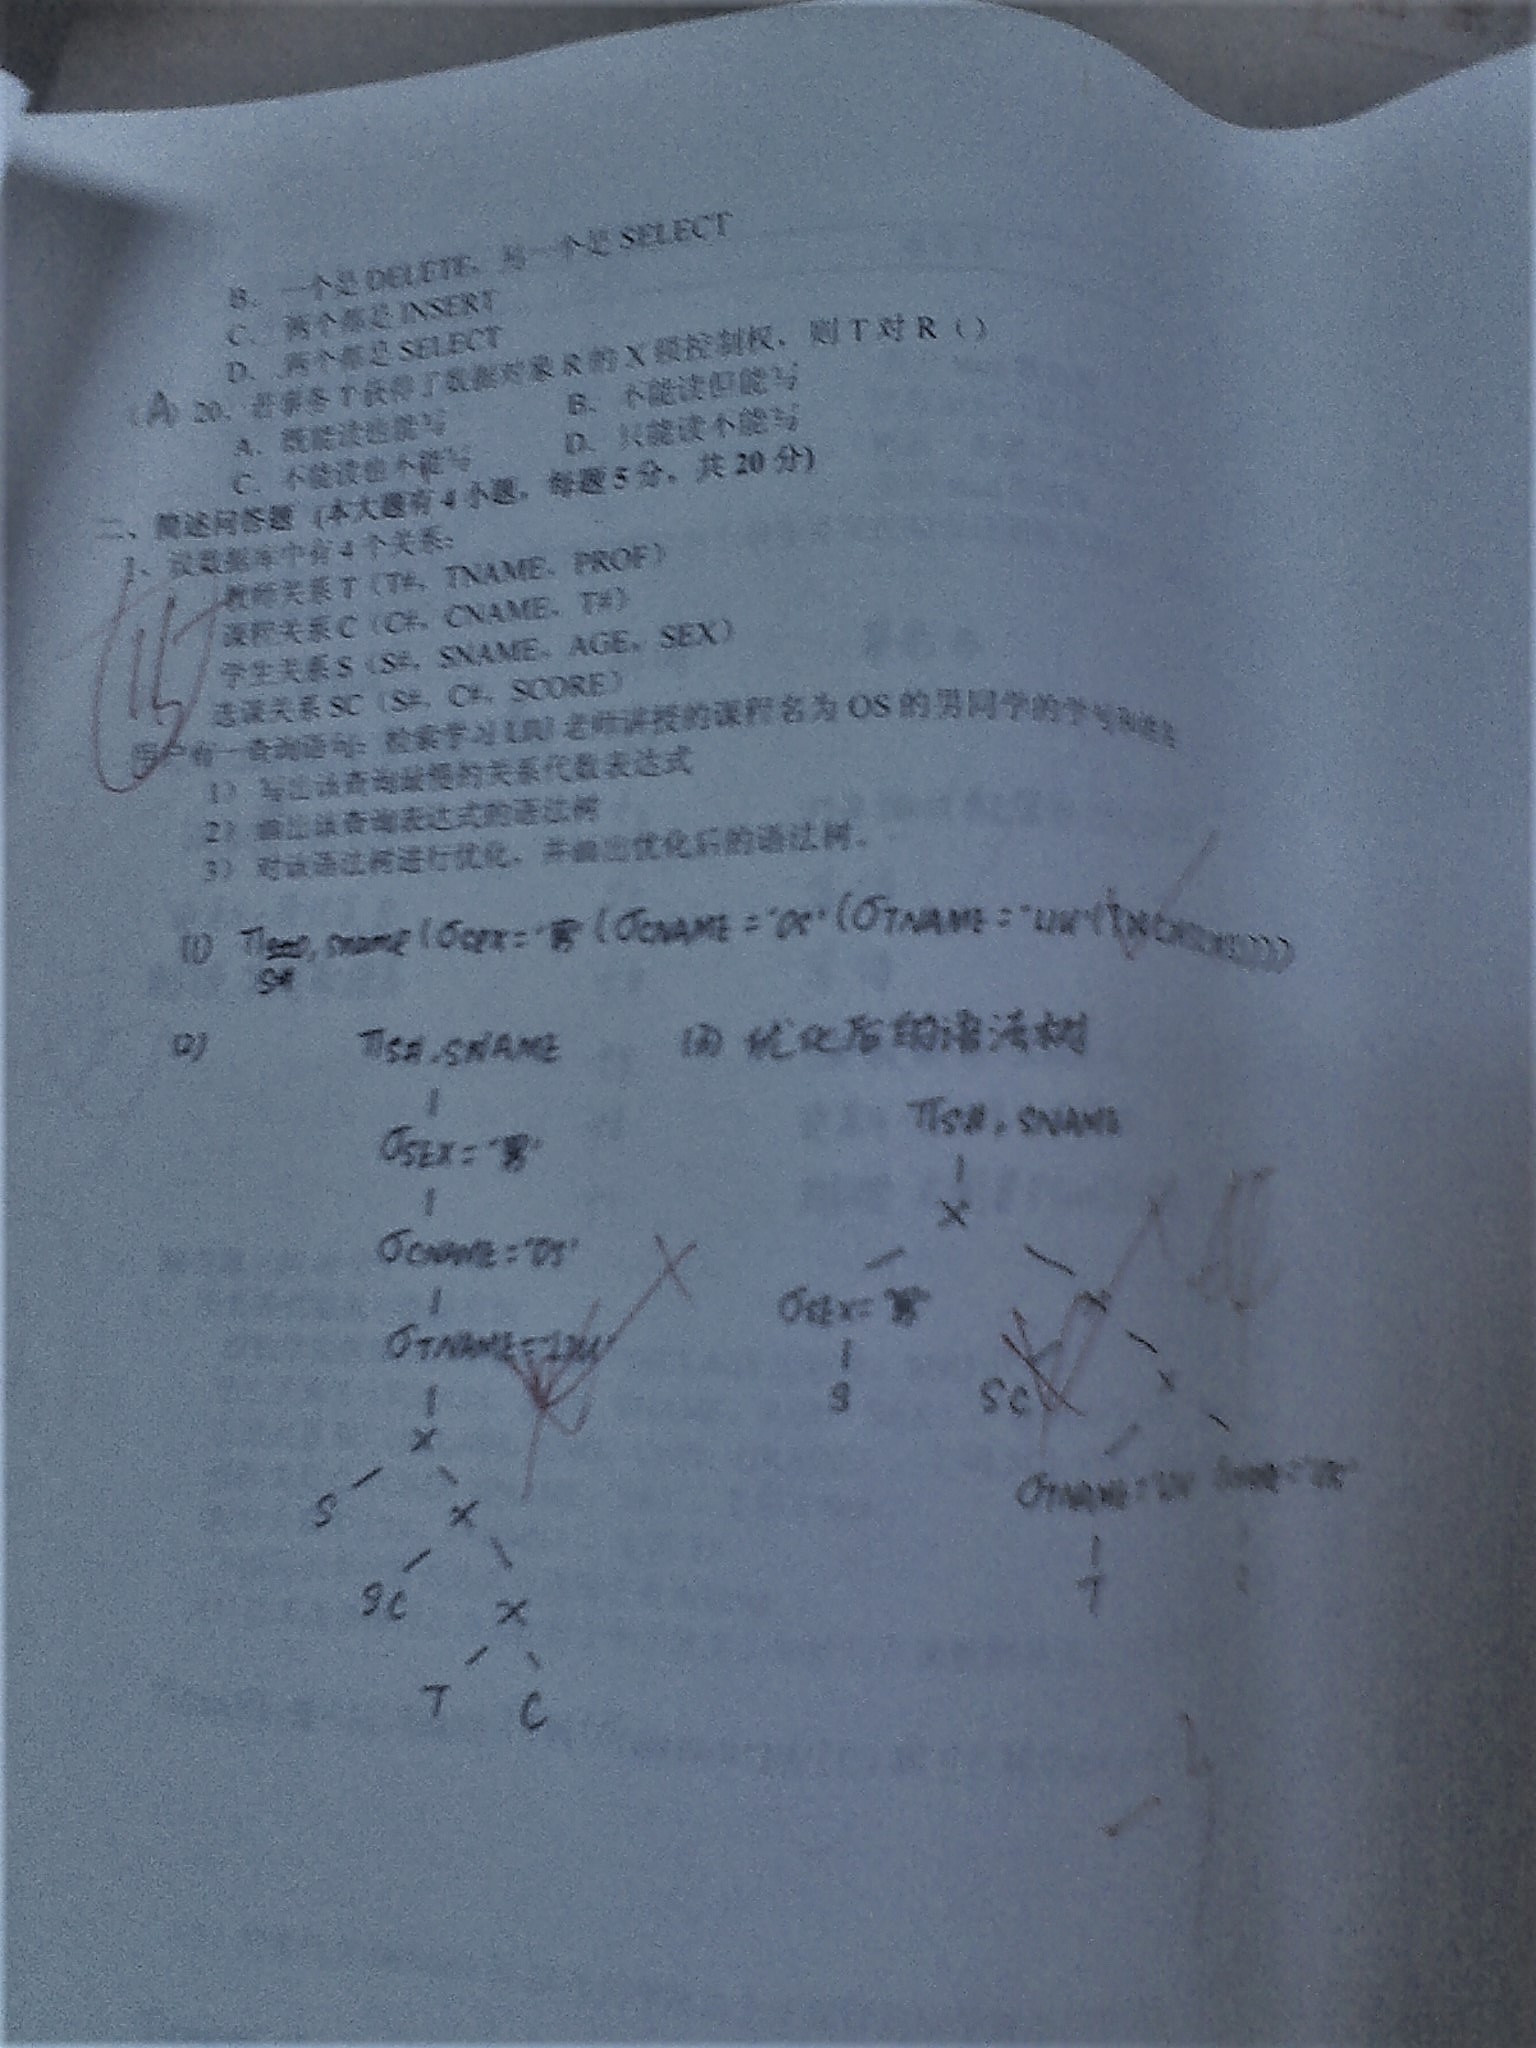 B、一个是 DELETE，另一个是 SELECT
C、两个都是 INSERT
D、两个都是 SELECT
（A）20、若事务 T 获得了数据对象 R 的 X 锁控制权，则 T 对 R（）
A、既能读也能写 B、不能读但能写
C、不能读也不能写 D、只能读不能写
二、简述问答题（本大题有 4 小题，每题 5 分，共 20 分）
1、设数据库中有 4 个关系：
教师关系 T（T#，TNAME，PROF）
课程关系 C（C#，CNAME，T#）
学生关系 S（S#，SNAME，AGE，SEX）
选课关系 SC（S#，C#，SCORE）
用户有一查询语句：检索学习 LIU 老师讲授的课程名为 OS 的男同学的学号和姓名
1）写出该查询 的关系代数表达式
2）画出该查询表达式的语法树
3）对该语法树进行优化，并画出优化后的语法树。
15
(1) π S#, SNAME (σSEX='男' (σCNAME='OS' (σTNAME='LIU'
(2) πS#,SNAME (3) 优化后的语法树
σSEX='男' πS#,SNAME
σCNAME='OS' ×
σTNAME='LIU' σSEX='男' ×
× S SC ×
S × σTNAME='LIU' σCNAME='OS'
SC × T
T C